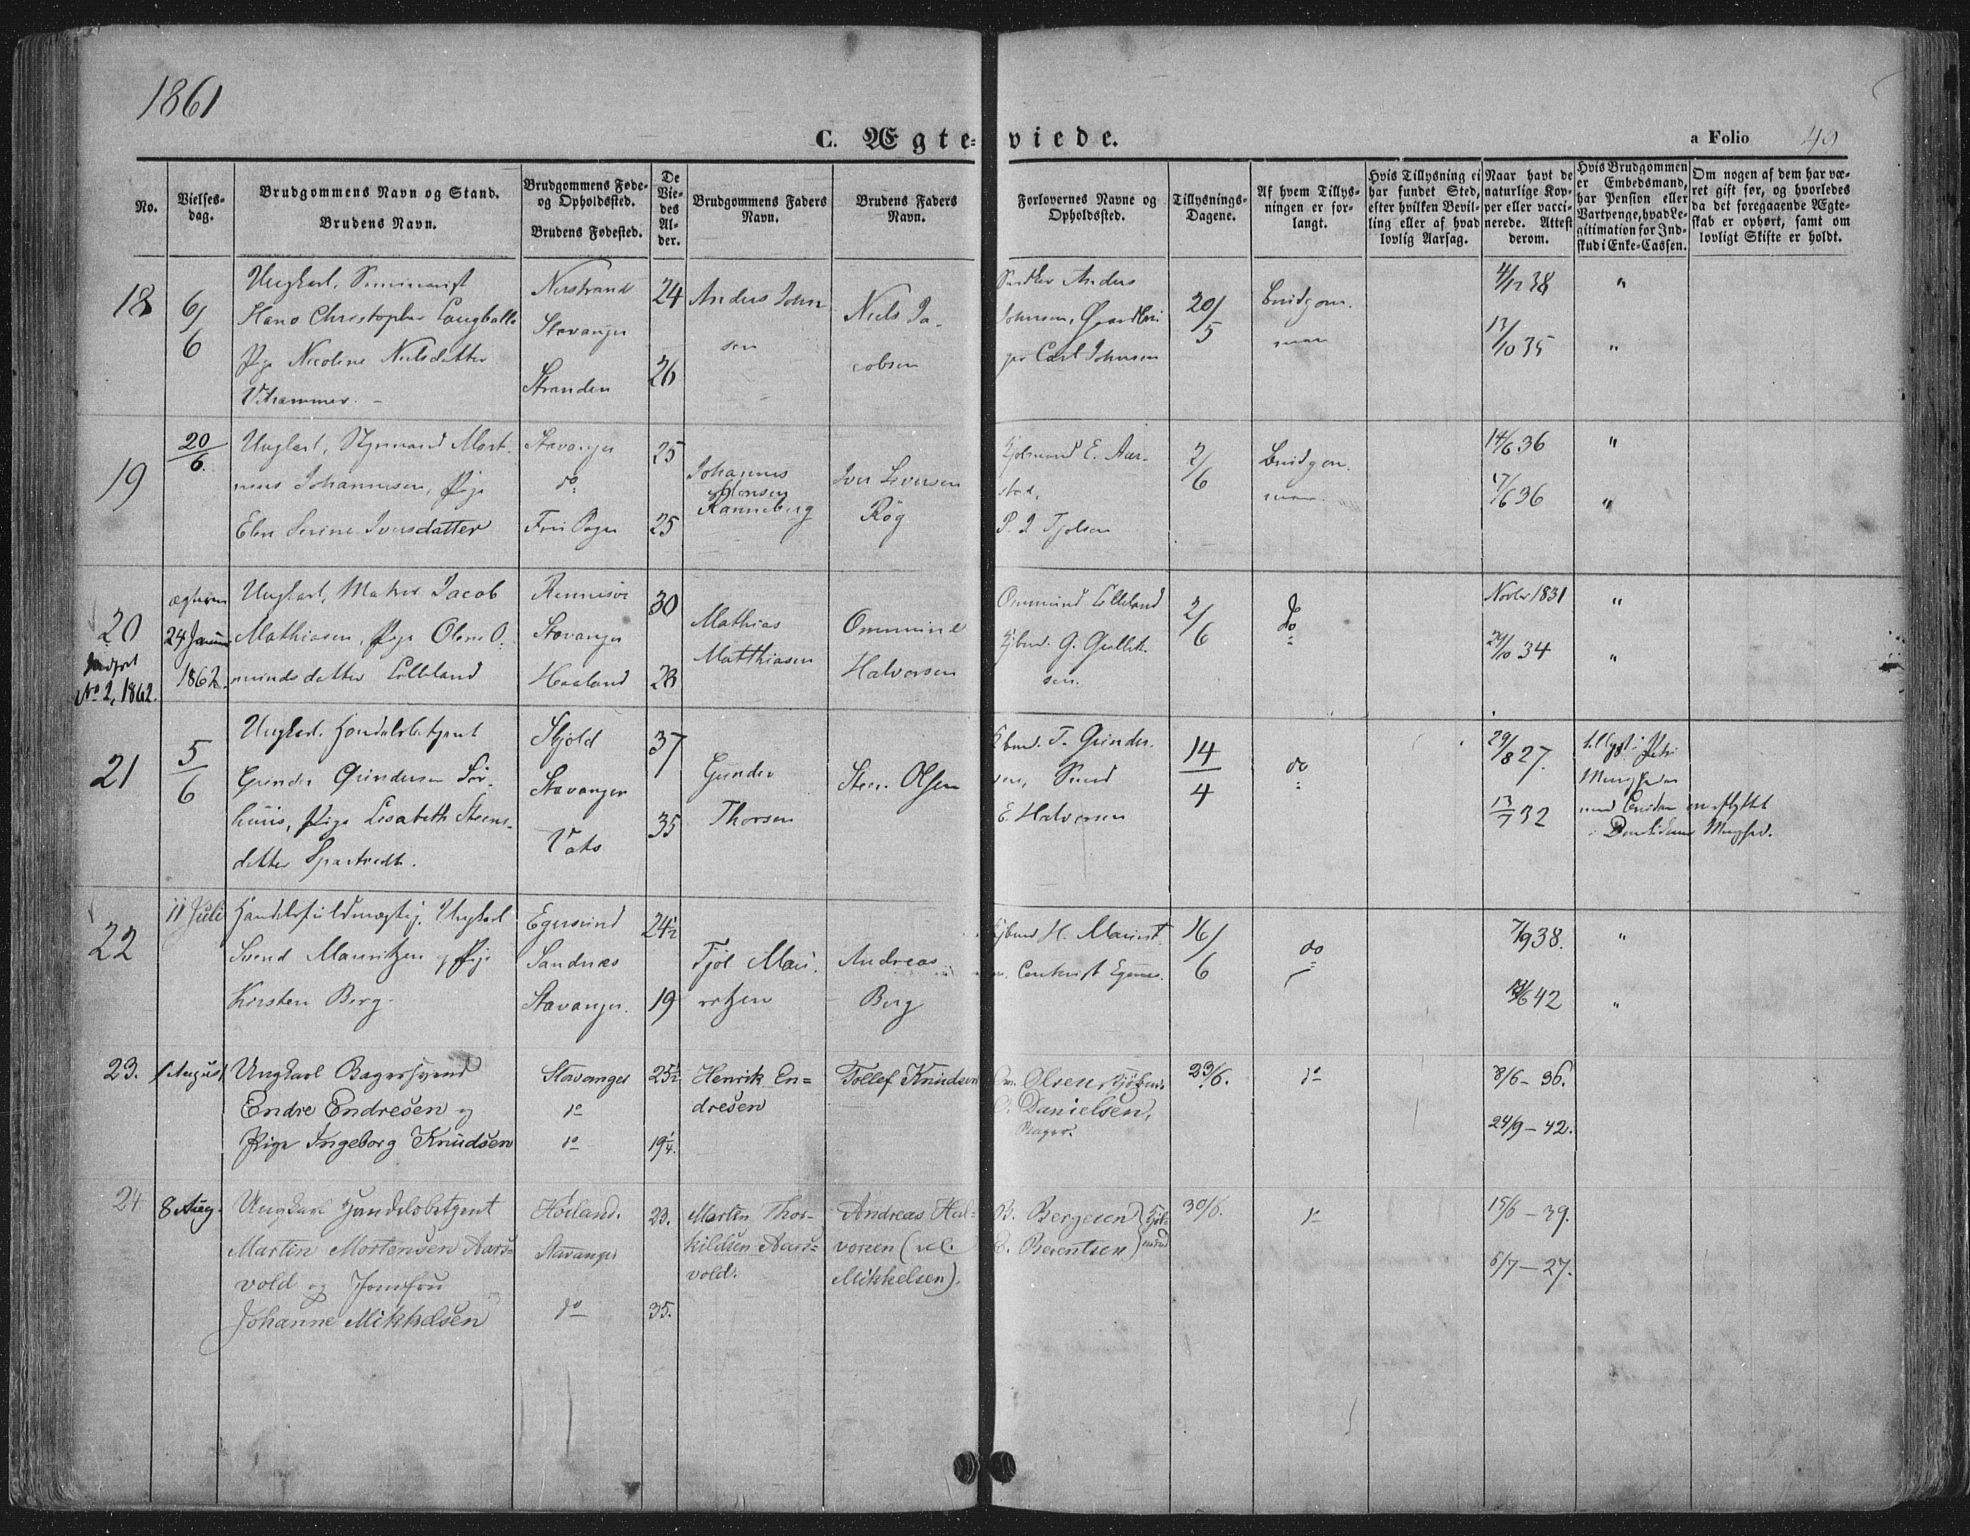 1861
C. Ægteviede.
a Folio 49
No.
Vielsesdag.
Brudgommens Navn og Stand.
Brudens Navn.
Brudgommens Føde- og Opholdssted.
Brudens Fødested.
De Viedes Alder.
Brudgommens Faders Navn.
Brudens Faders Navn.
Forlovernes Navne og Opholdssted.
Tillysnings-Dagene.
Af hvem Tillysningen er forlangt.
Hvis Tillysning ei har fundet Sted, efter hvilken Bevilling eller af hvad lovlig Aarsag.
Naar havt de naturlige Kopper eller vaccinerede. Attest derom.
Hvis Brudgommen er Embedsmand, har Pension eller Vartpenge, hvad Legitimation for Indskud i Enke-Cassen.
Om nogen af dem har været gift før, og hvorledes da det foregaaende Ægteskab er ophørt, samt om lovligt Skifte er holdt.
18
6/6
Ungkarl, Seminarist
Hans Christopher
Pige Nicoline Nielsdatter
Nerstrand
Stavanger
Stranden
24
26
Anders Johnsen
Niels Jacobsen
Anders
Johnsen,
Carl Johnsen
20/5
Brudgommen
4/12 38
13/10 35
19
20/6
Ungkarl, Styrmand Martinius Johannesen, Pige
Elen Serine Iversdatter
Stavanger
do
25
25
Johannes
Monsen
Ranneberg
Iver Iversen
Røg
E. Aarstad,
2/6
Brudgommen
14/6 36
17/6 36
20
Indført
No 2, 1862.
24 Januar
1862.
Ungkarl, Matros Jacob
Mathiasen, Pige Olene Ommundsdatter Lilleland
Rennesø
Stavanger
Haaland
30
28
Mathias
Matthiasen
Ommund
Halvorsen
Ommund Lilleland
2/6
do
Novbr 1831
21/10 34
21
5/6
Ungkarl Handelsbetjent
Gunder Gundersen Sørhuus, Pige Lisabeth Steensdatter
Skjold
Stavanger
Vats
37
35
Gunder
Thorsen
Steen Olsen
T. Gundersen, Svend
E Halvorsen
14/4
do
29/8 27.
13/7 32
22
11 Juli
Handelsfuldmægtig, Ungkarl
Svend Mauritzen og Pige
Kirsten Berg
Egersund
Sandnæs
Stavanger.
24½
19
Tjøl Mauritzen
Andreas
Berg
16/6
do
7/9 38.
42
23.
1 August
Ungkarl Bagersvend
Endre Endresen og
Pige Ingeborg Knudsen
Stavanger
do
do
25½
19¼.
Henrik Endresen
Tollef Knudsen
Olsen
Danielsen,
Bager.
23/6.
do
8/6 – 36.
24/9 – 42.
24.
8 Aug.
Ungkarl Handelsbetjent
Martin Mortensen Aarsvold og Jomfru
Johanne Mikkelsen
Høiland.
Stavanger
do
23.
35.
Martin Thorkildsen Aarsvold.
Andreas Halvorsen (
Mikkelsen).
B. Bergesen
Berentsen
30/6.
do
15/6 – 39.
6/7 – 27.